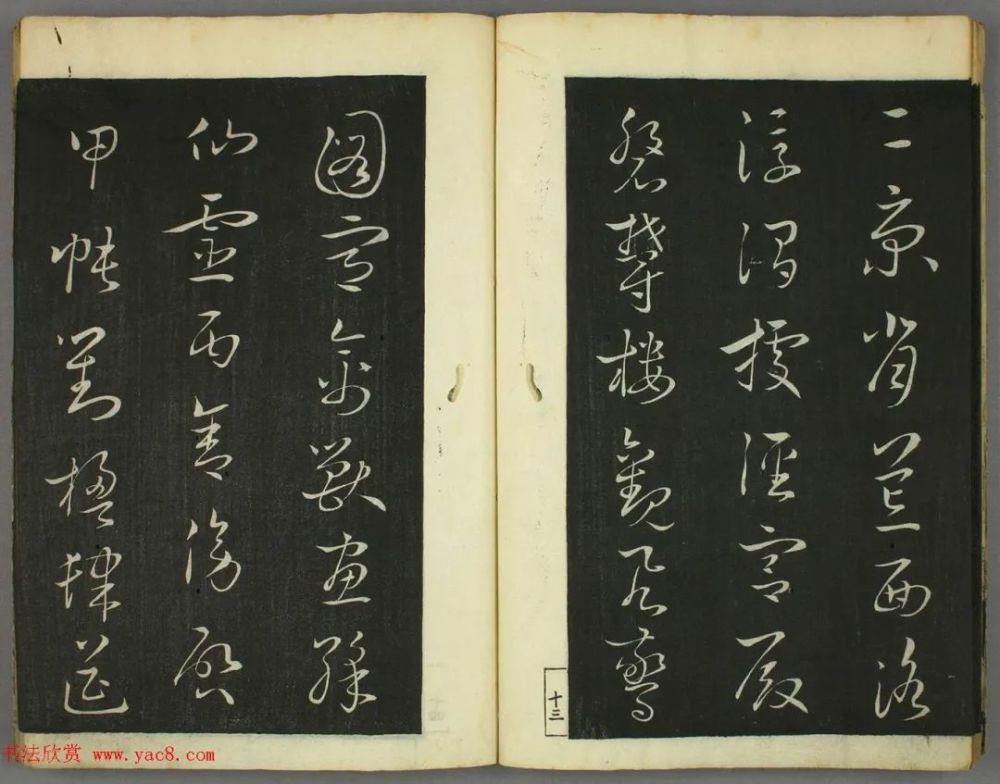 二京背芒面洛
浮渭據涇宮殿
盤鬱樓觀飛驚
圖寫禽獸畫綵
仙靈丙舍傍啓
甲帳對楹肆筵
十三
书法欣赏 www.yac8.com